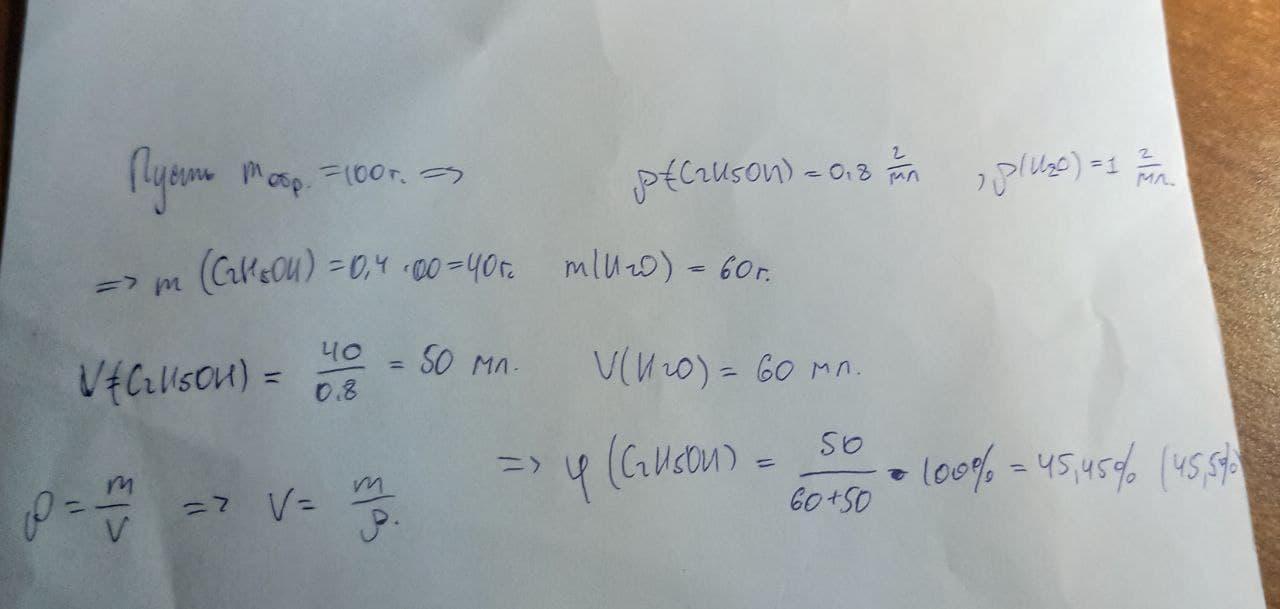 Пусть m обр. = 100г. => ρ(C2H5OH) = 0,8 г/мл , ρ(H2O) = 1 г/мл.
=> m (C2H5OH) = 0,4 · 00 = 40г. m(H2O) = 60г.
V(C2H5OH) = 40/0.8 = 50 мл. V(H2O) = 60 мл.
=> φ (C2H5OH) = 50/(60+50) · 100% = 45,45% (45,5%)
ρ = m/V => V = m/ρ.